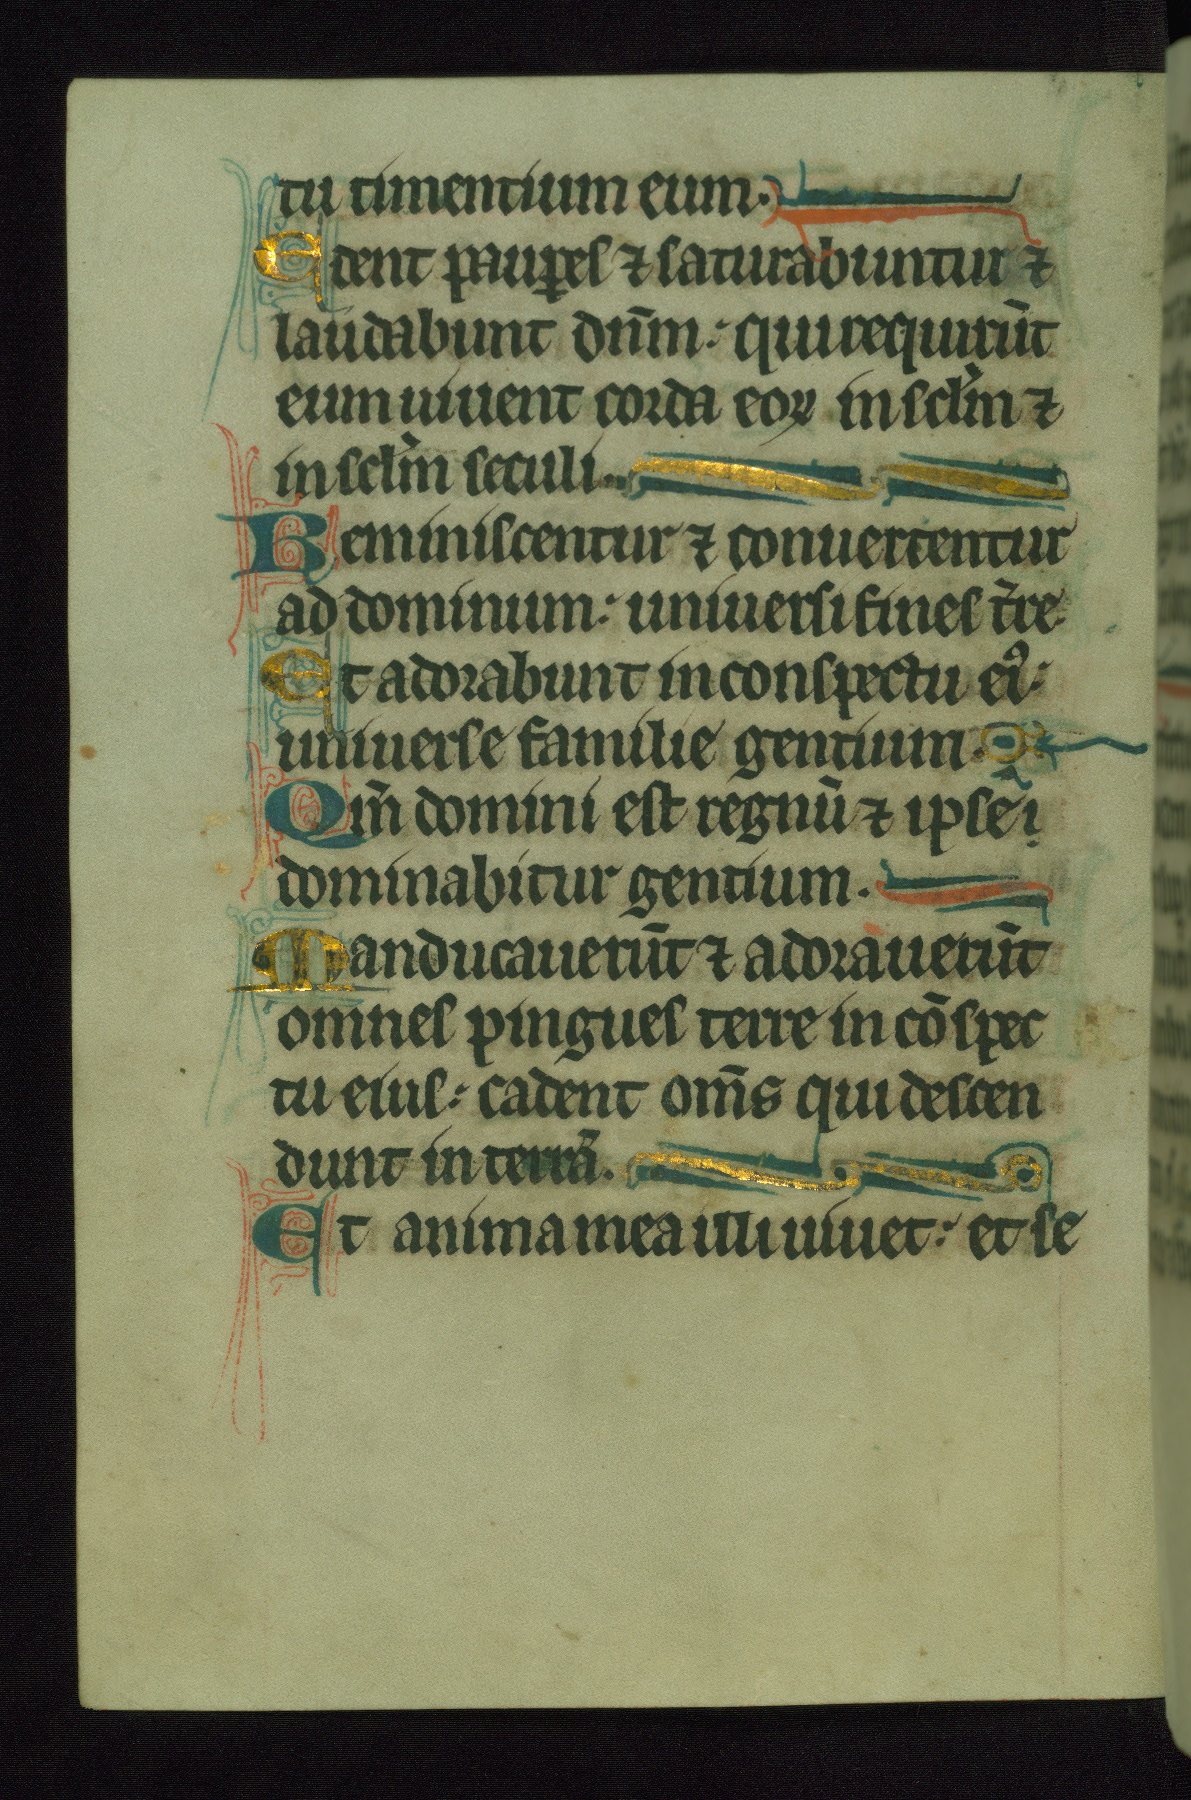 tu timentium eum.
Edent paup̲es ⁊ saturabuntur ⁊
laudabunt dn̄m: qui requirūt
eum uiuent corda eoꝝ in scl̄m ⁊
in scl̄m seculi.
Reminiscentur ⁊ conuertentur
ad dominum: uniuersi fines tr̄re
Et adorabunt in conspectu eiꝰ:
uniuerse familie gentium.
Qm̄ domini est regnū ⁊ ipse
dominabitur gentium.
Manducauerūt ⁊ adorauerūt
omnes pingues terre in cōspec
tu eius: cadent om̄s qui descen
dunt in terrā.
Et anima mea illi uiuet: et se